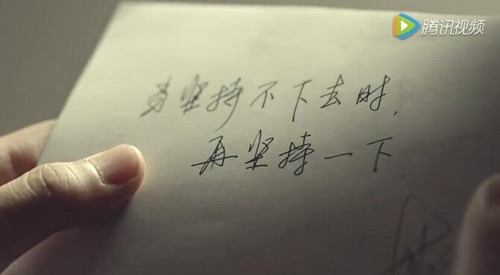 腾讯视频
当坚持不下去时,
再坚持一下